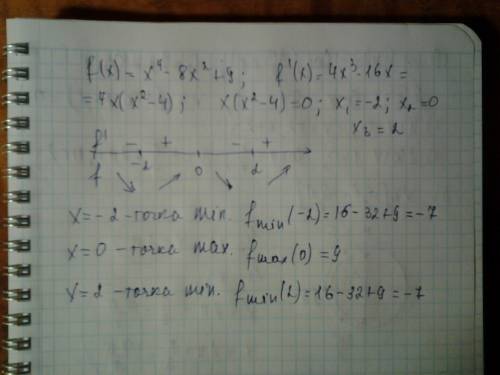 f(x) = x⁴ - 8x² + 9; f'(x) = 4x³ - 16x =
= 4x(x² - 4); x(x² - 4) = 0; x₁ = -2; x₂ = 0
x₃ = 2
f' - + - +
-2 0 2
f ↘ ↗ ↘ ↗
x = -2 - точка min. fmin(-2) = 16 - 32 + 9 = -7
x = 0 - точка max. fmax(0) = 9
x = 2 - точка min. fmin(2) = 16 - 32 + 9 = -7